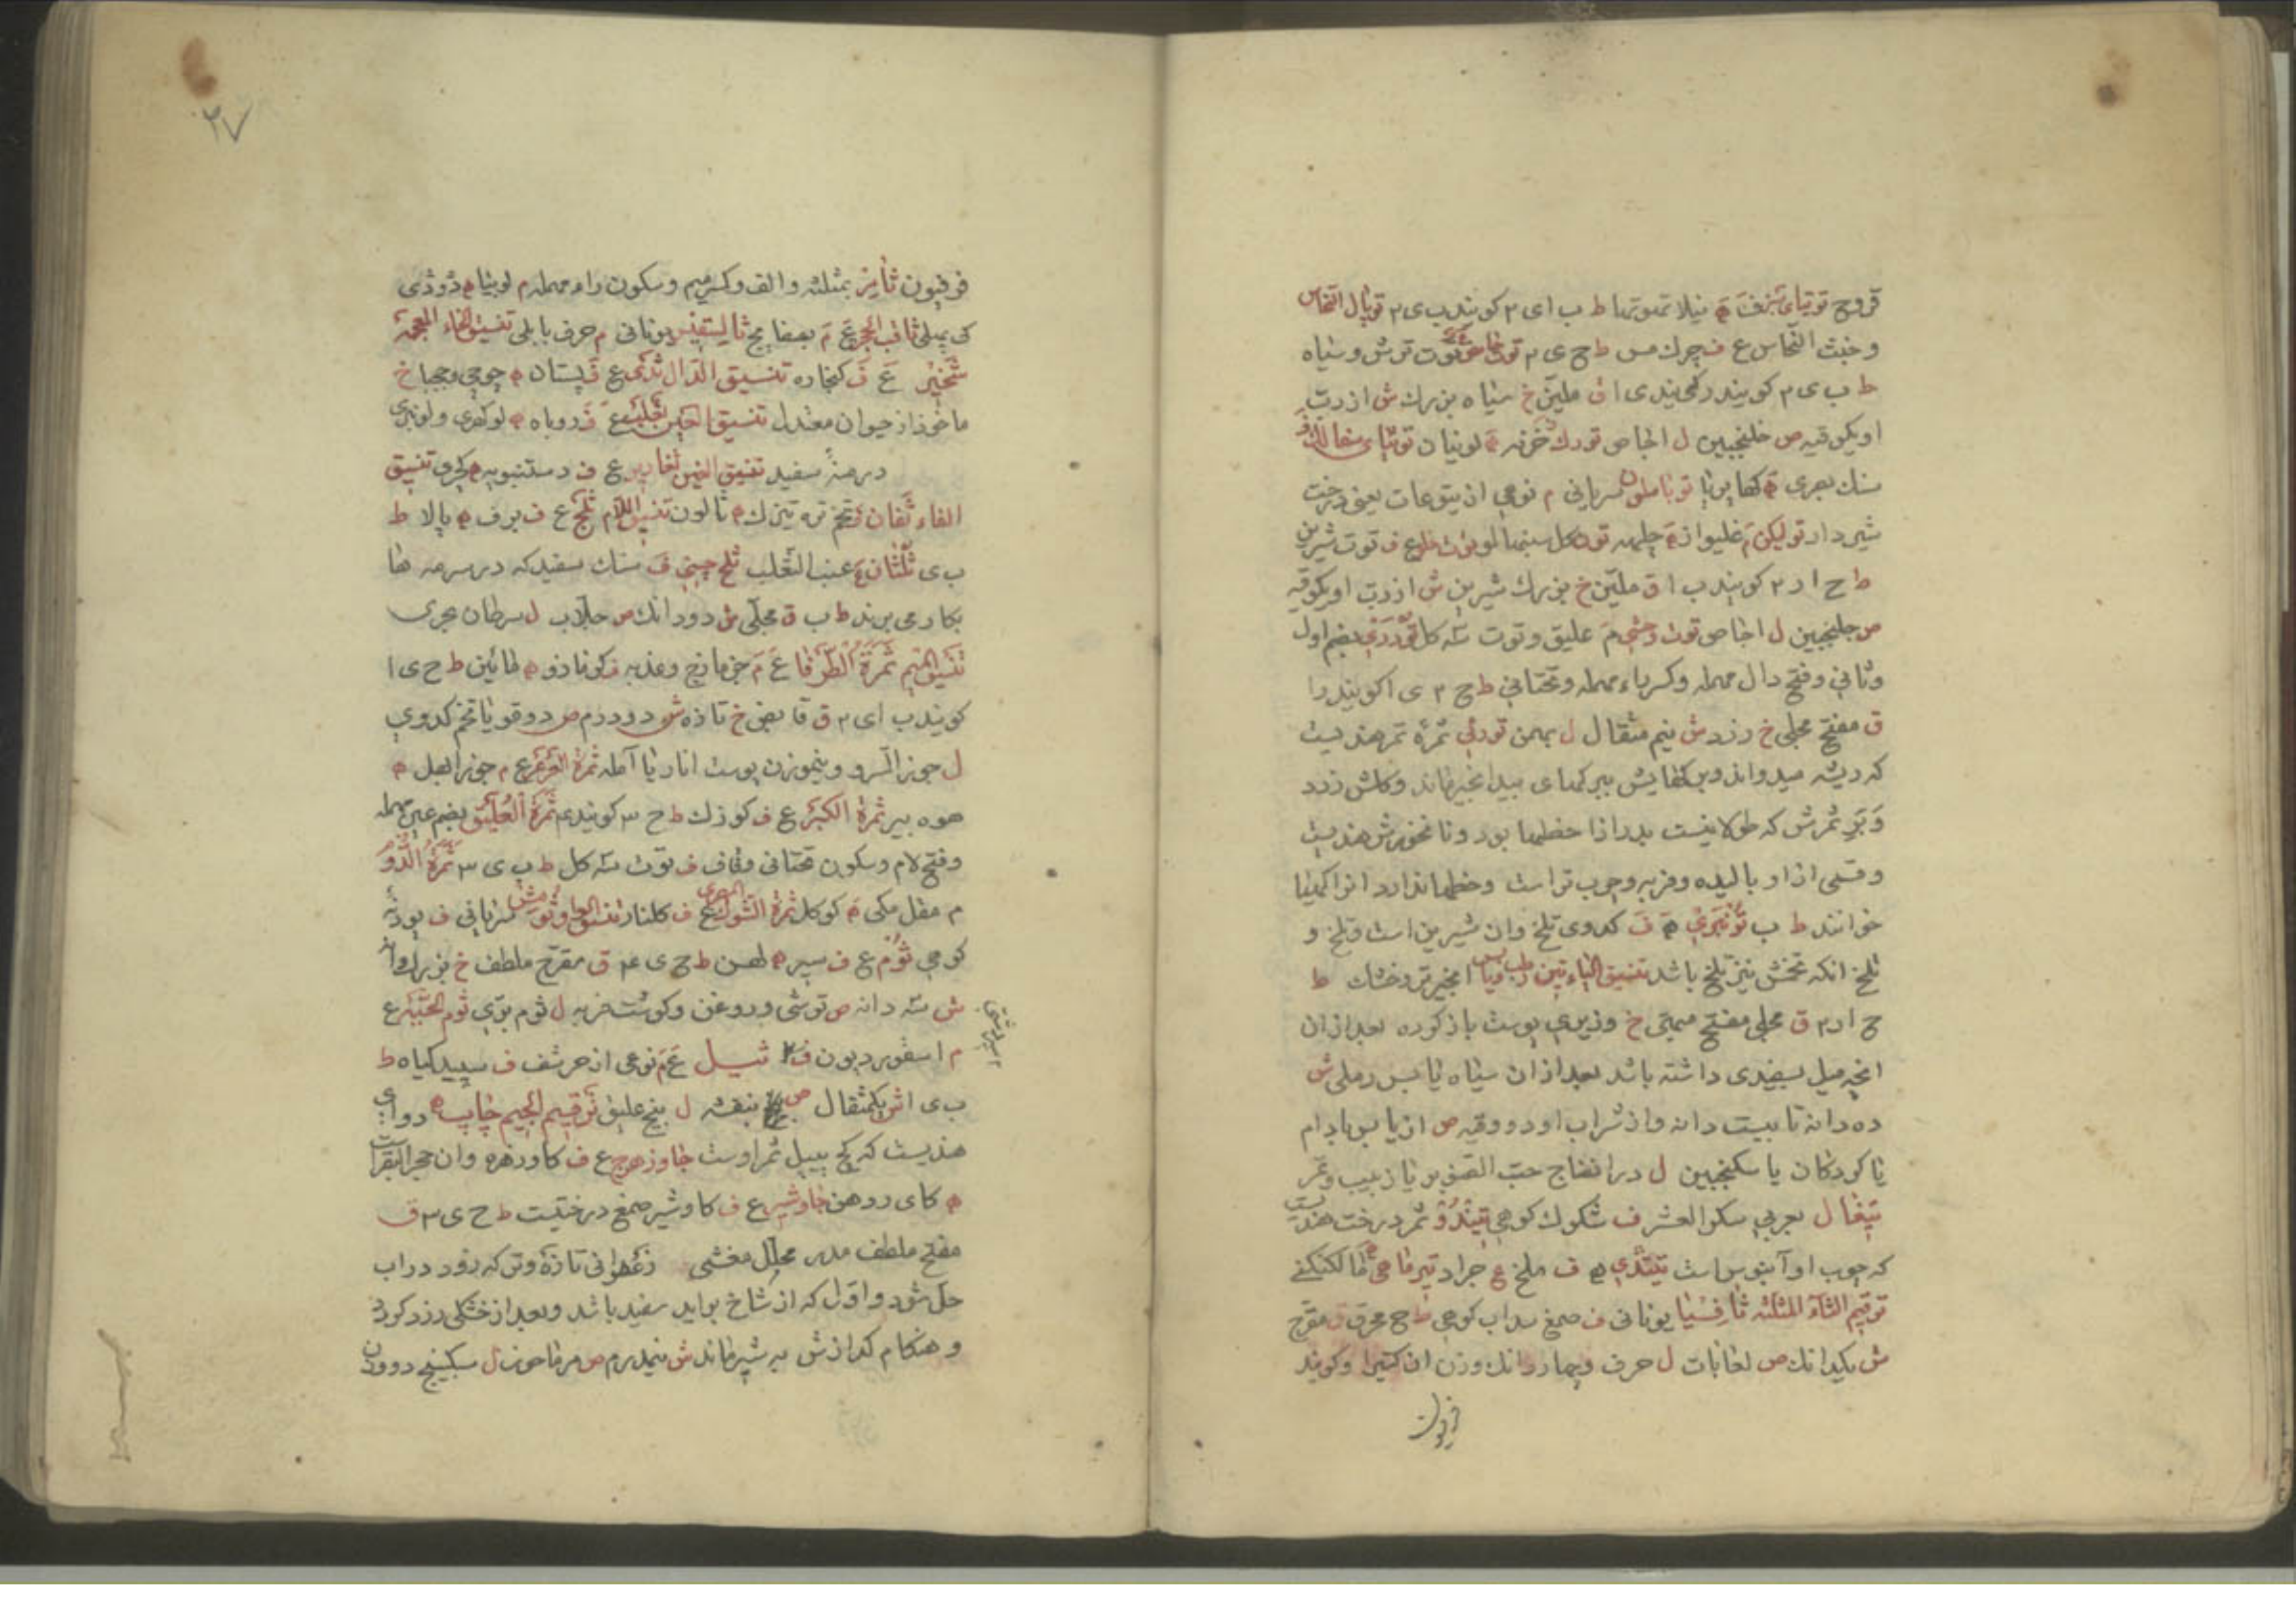 قروح توتیای سبز ف ه نیلا تهوتها ط ب ای ۳ کویند ب ی ۲ توبال النحاس
و خبث النحاس ع ف چرك مس ط ح ی ۳ توت ترش و سیاه
ط ب ی ۲ کویند ر کمی بندی ا ق ملین خ سیاه بزرك ش از رب
او یکوقیه ص خلنجبین ل اجاص تورك خرفه لونیان توتیای
سنك بصری ه کهاپریا سریانی م نوعی از یتوعات یعنی درخت
شیردار غلیواز ه چلهه ف توت شیرین
ط ح ا ر ۲ کویند ب ا ق ملین خ بزرك شیرین ش از رب او یکوقیه
ص جلنجبین ل اجاص توت وحشی م علیق و توت سه کل تودری بضم اول
و ثانی و فتح دال مهمله و کسر راء مهمله و تحتانی ط ح ۲ ی ا کویند را
ق مفتح مجلی خ زرد ش نیم مثقال ل بهمن تورئی ثمره ثمر هندیست
که ریشه میدواند و برکهایش ببرکهای بیدانجیر ماند و کلش زرد
و بر ثمرش که طولانیست بدرازا خطها بود و نانخورش هندیست
و قسمی از او بالیده و فربه و خوب تر است و خطها ندارد انرا کهیا
خوانند ط ب تونبری ه ف کدوی تلخ و ان شیرین است و تلخ و
تلخ انکه تخمش نیز تلخ باشد تنسیق الیاء تین رطب و یابس انجیر تر و خشك ط
ح ا ر ۲ ق مجلی مفتح مسمی خ وزیری پوست باز کرده بعد از ان
انچه میل بسفیدی داشته باشد بعد از ان سیاه یا بس رملی ش
ده دانه تا بیست دانه و از شراب او دو وقیه ص انیابس بادام
یا کردکان یا سکنجبین ل در انضاج حب الصنوبر یا زبیب و تمر
تیغال بعربی سکر العشر ف شکوك کوهی تیندو ثمر درخت هندیست
که چوب او آبنوس است تیندی ه ف ملخ ع جراد
ترقیم الثاء المثلثه ثافسیا یونانی ف صمغ سداب کوهی ط ح محرق ق مقرح
ش یکدانك ص لعابات ل حرف و چهار دانك وزن ان کتیرا و کویند
فرفیون
۲۷
فرفیون ثامر بمثلثه و الف و کسر میم و سکون راء مهمله م لوبیا ه دودی
کی پهلی ثاقب الحجر ع م بسفایج ثالیسفیس یونانی م حرف بابلی تنسیق الخاء المعجمة
ثخیر ع ف کنجاره تنسیق الدال ثدی ع ف پستان ه چوچی و چها خ
ماخوذ از حیوان معتدل تنسیق العین ثعلب ع ف روباه ه لوکهری و لونبری
درمنهٔ سفید تنسیق الغین ثغار ع ف دستنبویه ه کچری تنسیق
الفاء ثفان تخم تره تیزك ه هالون تنسیق اللام ثلج ع ف برف ه پالا ط
ب ی ثلثان ع عنب الثعلب ثلج چینی ف سنك سفید که در سرمه ها
بکار می برند ط ب ق مجلی ش دو دانك ص جلاب ل سرطان بحری
تنسیق المیم ثمرة الطرفا ع م جزمازج و عذبه ف کزمازو ه مائین ط ح ی ا
کویند ب ای ۲ ق قابض خ تازه ش دو درم ص دوقو یا تخم کدوی
ل جوز السرو و نیموزن پوست انار یا آمله ثمرة العرعر ع م جوز ابهل ه
هوه بیر ثمرة الکبر ع ف کوزك ط ح ۳ کویند ۴ ثمرة العلیق بضم عین مهمله
و فتح لام و سکون تحتانی و قاف ف توت سه کل ط ب ی ۳ ثمرة الدوم
م مقل مکی ه کوکل ثمرة الشوك المصری ع ف کلنار تنسیق الواو ثومش سریانی ف پودنه
کوهی ثوم ع ف سیر ه لهسن ط ح ی ۴ ق مقرح ملطف خ بزرك دانه
ش سه دانه ص ترشی و روغن و کوشت فربه ل ثوم بری ثوم الحیه ع
م اسقوردیون ف ثیل ع م نوعی از حرشف ف سپید کیاه ط
ب ی ا ش یکمثقال ص بنفشه ل بیخ علیق ترقیم الجیم چاب ه دوای
هندیست که کج پیپل ثمر اوست جاوزهرج ع ف کاوزهره و ان حجر البقر است
ه کای روهن جاوشیر ع ف کاوشیر صمغ درختیست ط ح ی ۳ ق
مفتح ملطف مدر محلل مغشی زعفرانی تازه و تر که زود در اب
حل شود و اول که از شاخ براید سفید باشد و بعد از خشکی زرد کردد
و هنکام کدازش به شیر ماند ش نیمدرم ص مرماحوز ل سکبینج دووزن